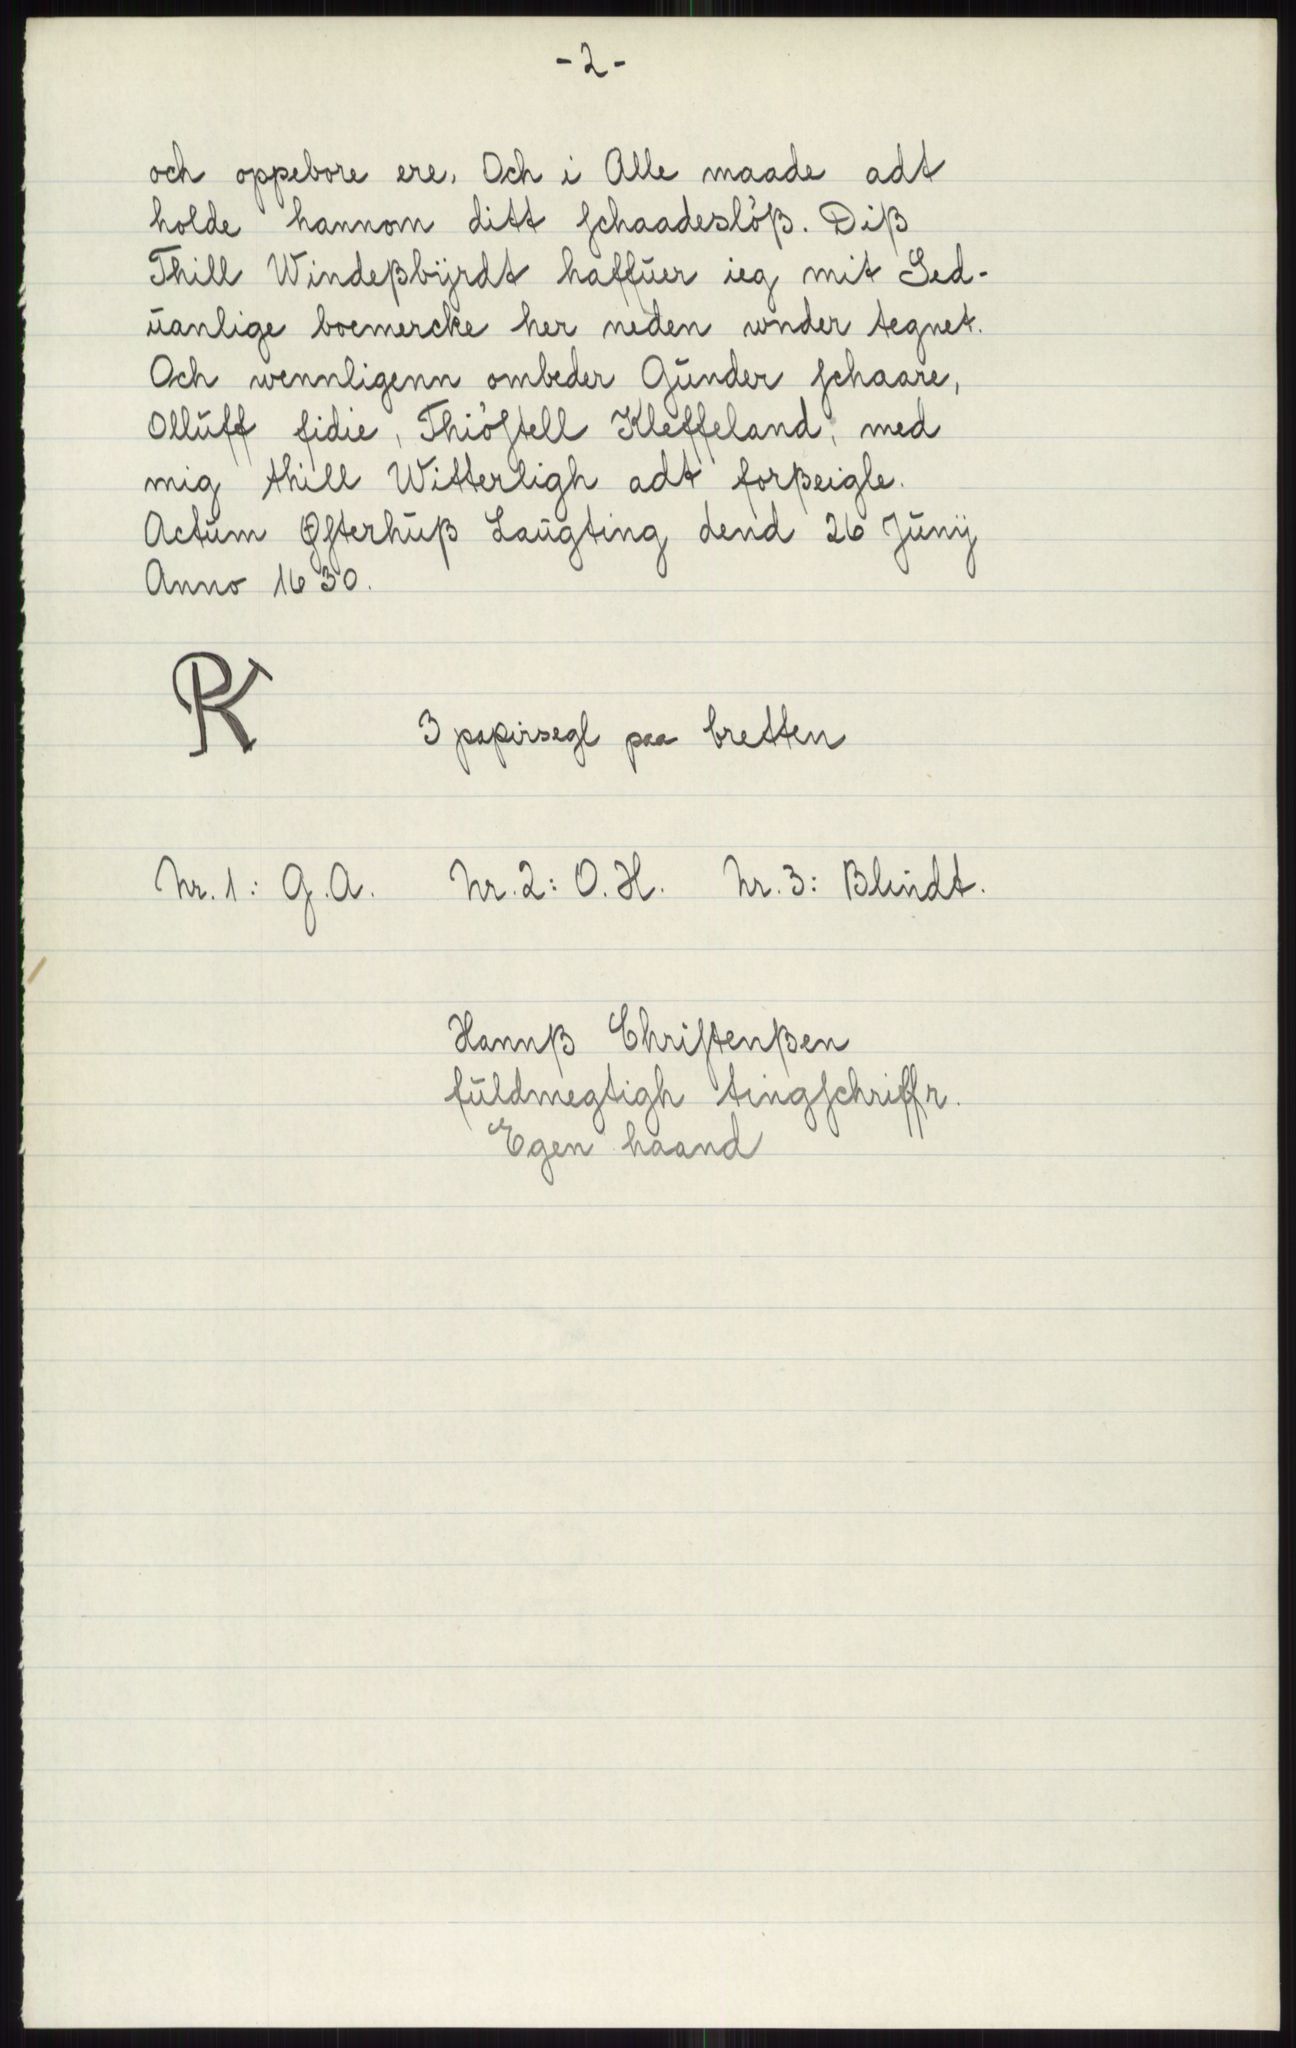 - 2 -
och oppebore ere. Och i Alle maade adt
holde hannom ditt schaadesløß. Diß
Thill Windeßbÿrdt haffūer ieg mit Sed-
ūanlige boemercke her neden wnder tegnet.
Och wennligenn ombeder Gūnder schaare,
Ollūff fidie, Thiøstell Kleffeland, med
mig thill Witterligh adt forßeigle.
Actum Østerhūß Laūgting dend 26 Jūnÿ
Anno 1630.
3 papirsegl paa bretten
Nr. 1: G.A. Nr. 2: O.H. Nr. 3: Blindt.
Hannß Christenßen
fūldmegtigh tingschriffr.
Egen haand